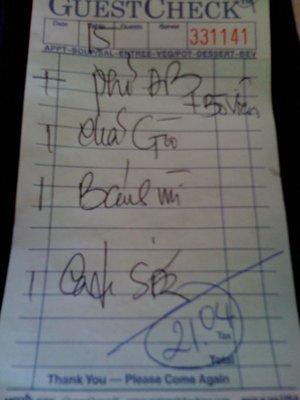 GUESTCHECK
Date Table Guests Server
15 331141
APPT-SOUP/SAL-ENTREE-VEG/POT-DESSERT-BEV
1 phở ĐB
+ Bò Viên
1 chả Giò
1 Bánh mì
1
21.04
Tax
Total
Thank You — Please Come Again